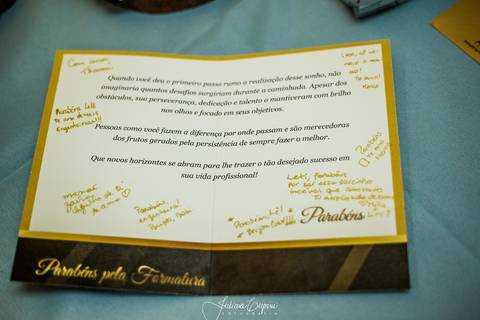 Com amor,
Quando você deu o primeiro passo rumo a realização desse sonho, não
imaginaria quantos desafios surgiriam durante a caminhada. Apesar dos
obstáculos, sua perseverança, dedicação e talento o mantiveram com brilho
nos olhos e focado em seus objetivos.
Parabéns Lelê
te amo demais
engenheira!!!
Te amo!
Pessoas como você fazem a diferença por onde passam e são merecedoras
dos frutos gerados pela persistência de sempre fazer o melhor.
Parabéns
te amo
Que novos horizontes se abram para lhe trazer o tão desejado sucesso em
sua vida profissional!
orgulho de ti
te amo
Parabéns,
engenheira!
Parabéns Lê!
Leti, parabéns
por
Parabéns
Parabéns pela Formatura
FOTOGRAFIA